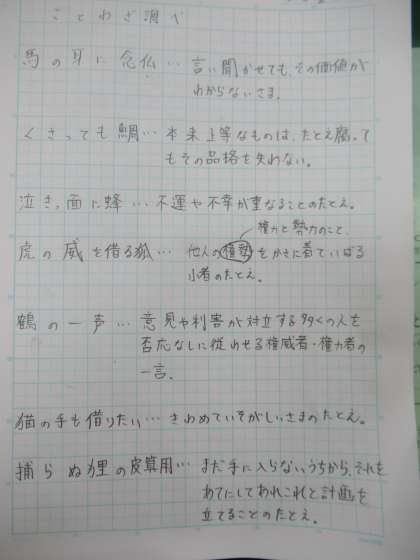 ことわざ調べ
馬の耳に念仏… 言い聞かせても、その価値が
わからないさま。
くさっても鯛… 本来上等なものは、たとえ腐って
もその品格を失わない。
泣きっ面に蜂… 不運や不幸が重なることのたとえ。
権力と勢力のこと。
虎の威を借る狐… 他人の権勢をかさに着ていばる
小者のたとえ。
鶴の一声… 意見や利害が対立する多くの人を
否応なしに従わせる権威者・権力者の
一言。
猫の手も借りたい… きわめていそがしいさまのたとえ。
捕らぬ狸の皮算用… まだ手に入らないうちから、それを
あてにしてあれこれと計画を
立てることのたとえ。